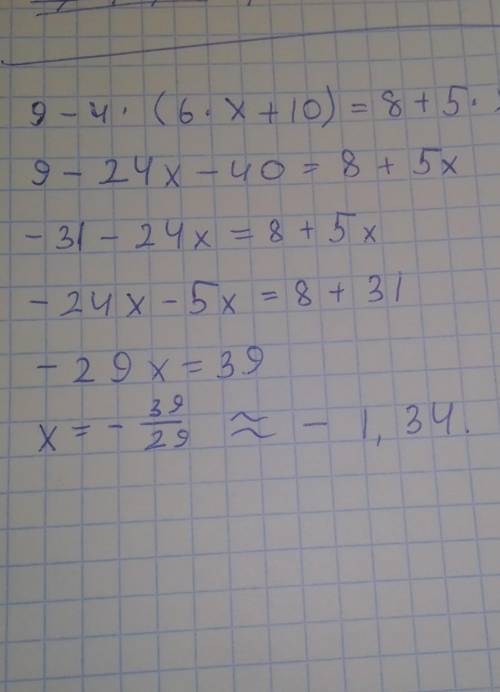 9 - 4 · (6 · x + 10) = 8 + 5 ·
9 - 24x - 40 = 8 + 5x
-31 - 24x = 8 + 5x
-24x - 5x = 8 + 31
-29x = 39
x = - 39/29 ≈ - 1,34.